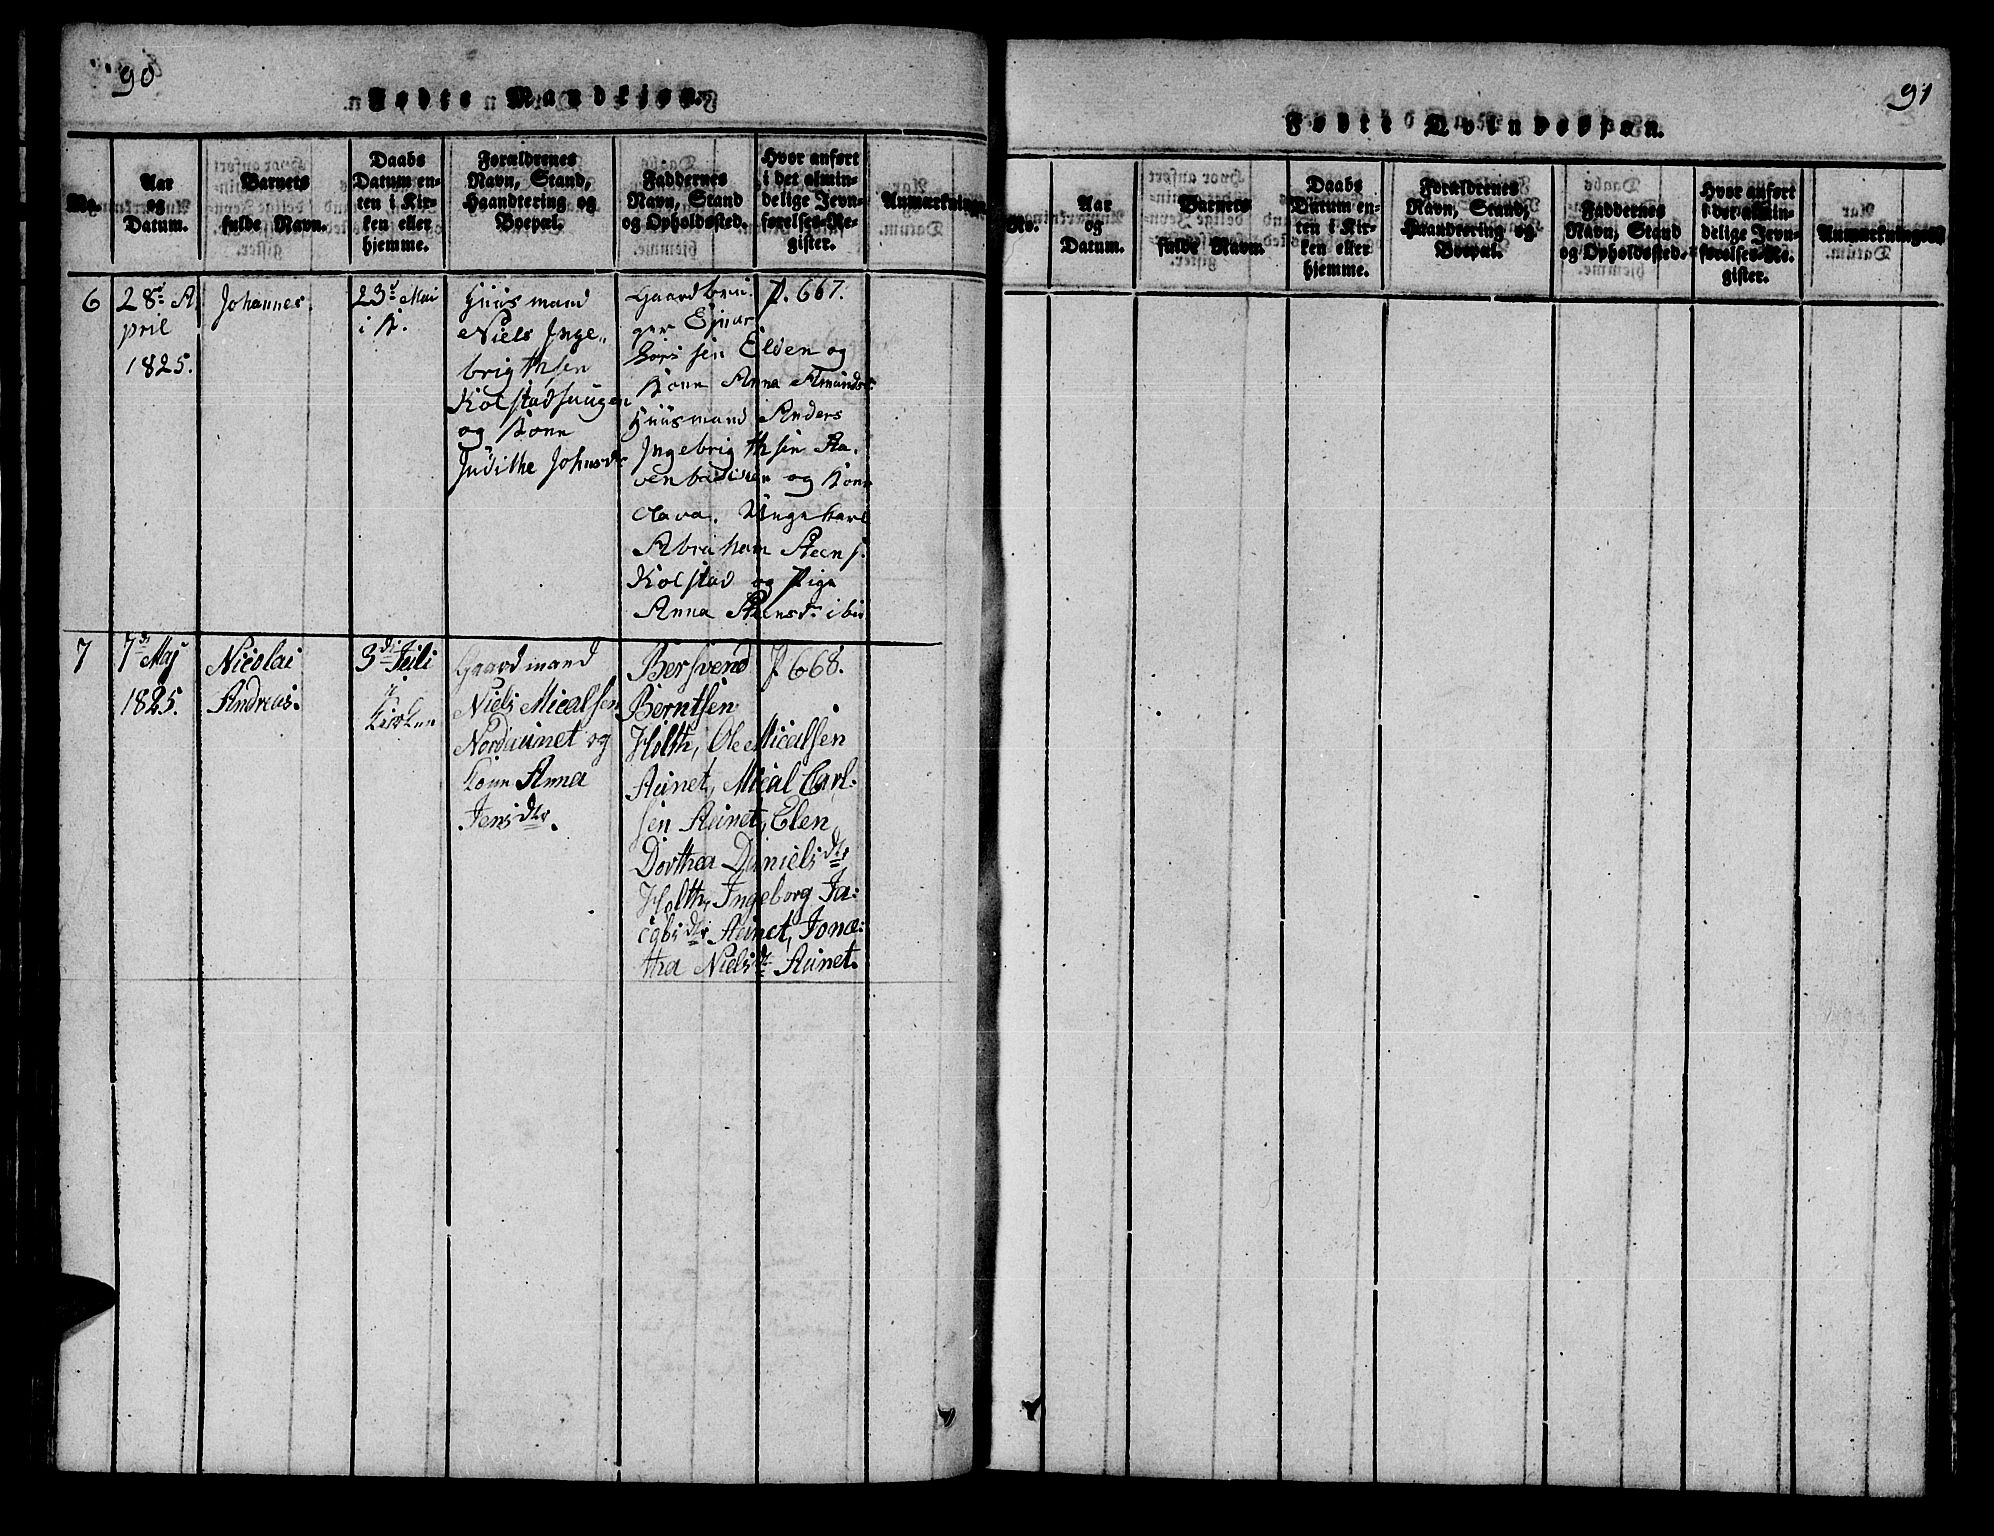 90
Fødte Mandkiøn.
No.
Aar
og
Datum.
Barnets
fulde Navn.
Daabs
Datum en-
ten i Kir-
ken eller
hjemme.
Forældrenes
Navn, Stand,
Haandtering og
Boepæl.
Faddernes
Navn, Stand
og Opholdssted.
Hvor anført
i det almin-
delige Jevn-
førelses-Re-
gister.
Anmærkninger
6
28de A
pril
1825.
Johannes.
23de Mai
i K.
Huusmand
Niels Inge-
brigthsen
Kolstad
og Kone
Judithe Johnsdr
Gaardbru-
ger Ejnar
Elden og
Kone Anna Amunds
Huusmand Anders
Ingebrigthsen
og Kone
Unge karl
Abraham Steens.
Kolstad og Pige
Anna Steensdr
P. 667.
7
7de Maj
1825.
Nicolai
Andreas.
3die Juli
i
Kirken
Gaardmand
Niels Micalsen
Nordaunet og
Kone Anna
Jensdtr.
Bersvend
Berntsen
Holth, Ole Micalsen
Aunet, Mical Carl-
sen Aunet, Elen
Dorthea Danielsdtr
Holth, Ingeborg Ja-
cobsdtr Aunet, Jonæ-
tha Nielsdtr Aunet.
P. 668.
91
Fødte Qvindekøn.
No.
Aar
og
Datum.
Barnets
fulde Navn.
Daabs
Datum en-
ten i Kir-
ken eller
hjemme.
Forældrenes
Navn, Stand,
Haandtering og
Boepæl.
Faddernes
Navn, Stand
og Opholdssted.
Hvor anført
i det almin-
delige Jevn-
førelses-Re-
gister.
Anmærkninger